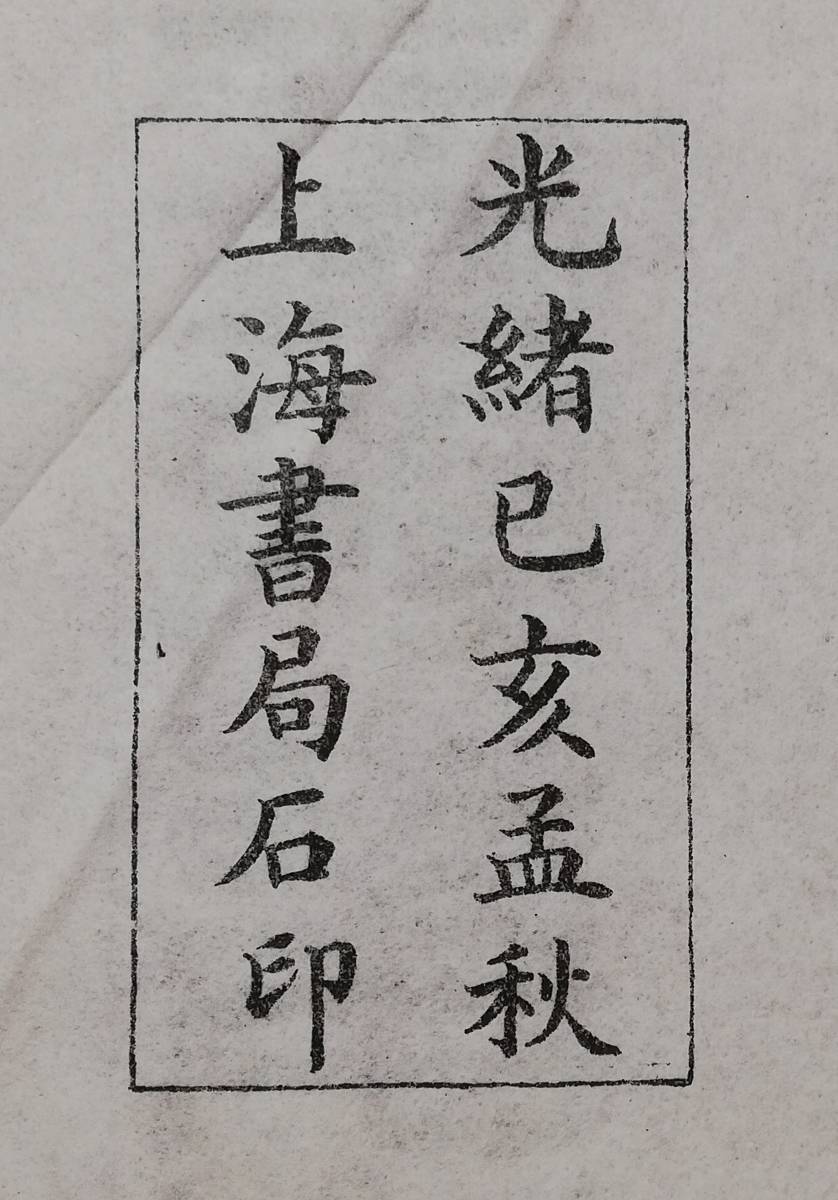 光緒已亥孟秋
上海書局石印